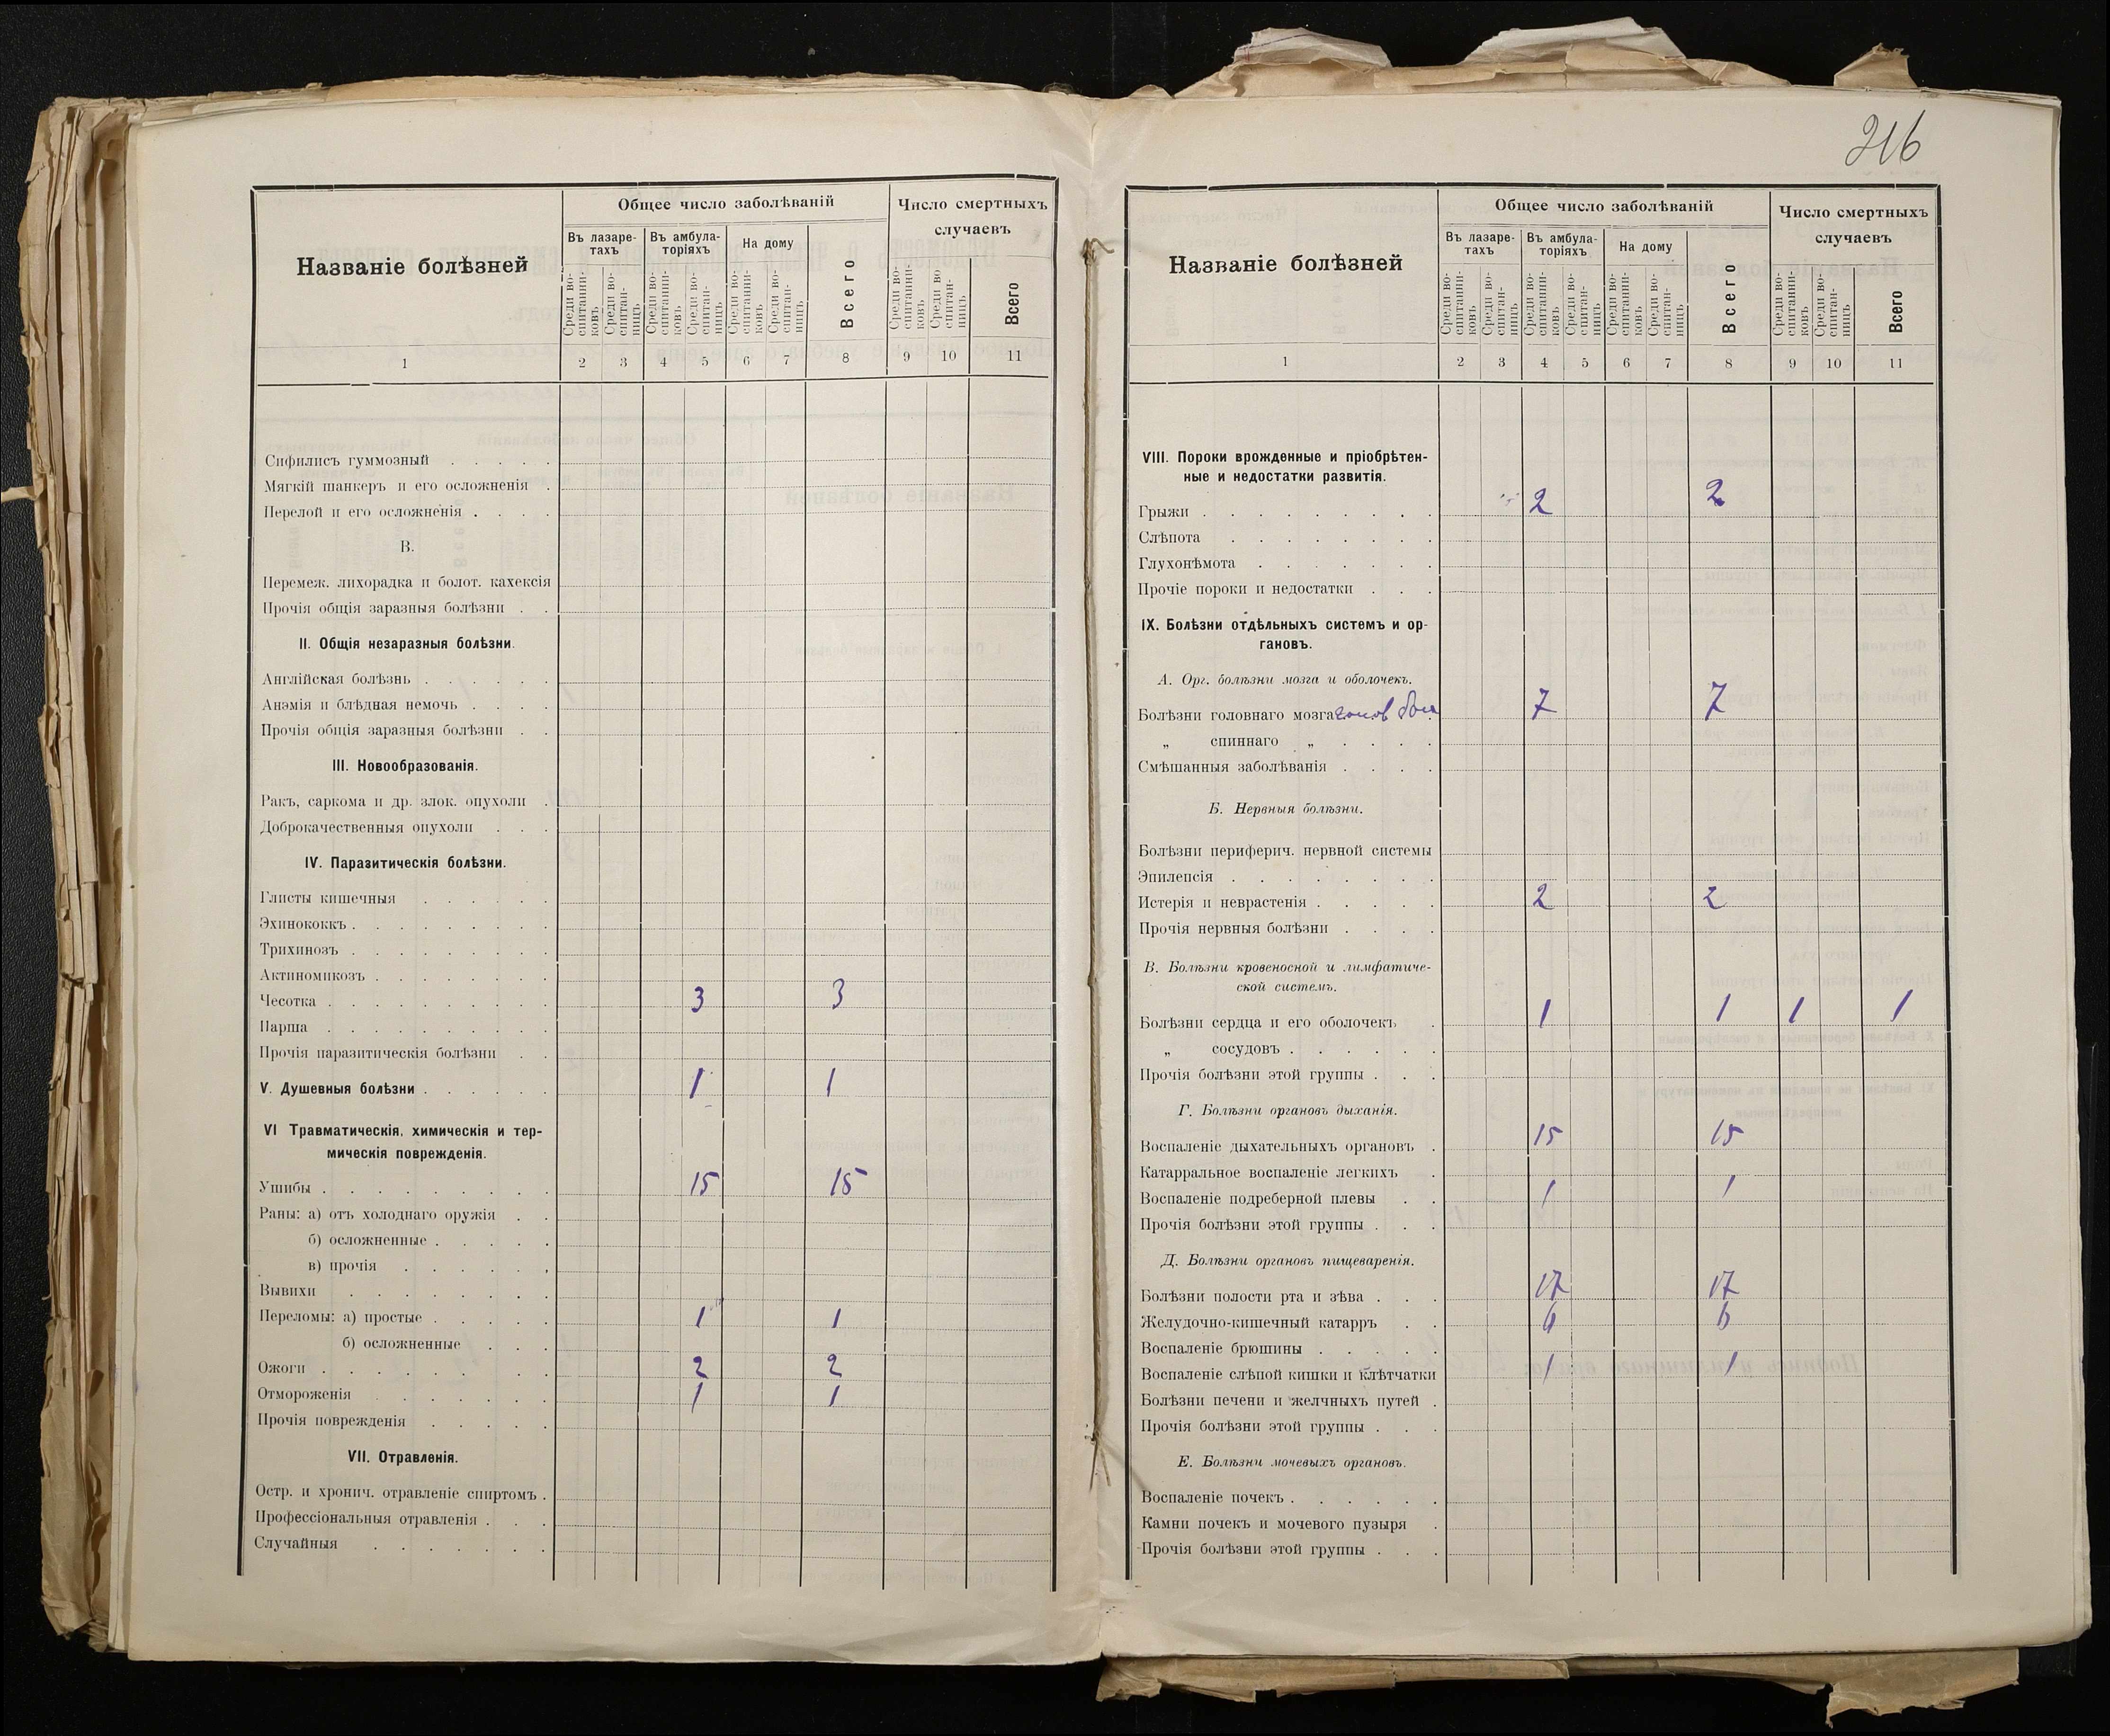 216
Названіе болѣзней
Общее число заболѣваній
Число смертныхъ случаевъ
Въ лазаре-
тахъ
Въ амбула-
торіяхъ
На дому
Среди во-
спитанни-
ковъ
Среди во-
спитан-
ницъ
Среди во-
спитанни-
ковъ
Среди во-
спитан-
ницъ
Среди во-
спитанни-
ковъ
Среди во-
спитан-
ницъ
Всего
Среди во-
спитанни-
ковъ
Среди во-
спитан-
ницъ
Всего
1 2 3 4 5 6 7 8 9 10 11
Сифилисъ гуммозный
Мягкій шанкеръ и его осложненія
Перелой и его осложненія
В.
Перемеж. лихорадка и болот. кахексія
Прочія общія заразныя болѣзни
II. Общія незаразныя болѣзни.
Англійская болѣзнь
Анэмія и блѣдная немочь
Прочія общія заразныя болѣзни
III. Новообразованія.
Ракъ, саркома и др. злок. опухоли
Доброкачественныя опухоли
IV. Паразитическія болѣзни.
Глисты кишечныя
Эхинококкъ
Трихинозъ
Актиномикозъ
Чесотка 3 3
Парша
Прочія паразитическія болѣзни
V. Душевныя болѣзни 1 1
VI Травматическія, химическія и тер-
мическія поврежденія.
Ушибы 15 15
Раны: а) отъ холоднаго оружія
б) осложненные
в) прочія
Вывихи
Переломы: а) простые 1 1
б) осложненные
Ожоги 2 2
Отмороженія 1 1
Прочія поврежденія
VII. Отравленія.
Остр. и хронич. отравленіе спиртомъ
Профессіональныя отравленія
Случайныя
Названіе болѣзней
Общее число заболѣваній
Число смертныхъ случаевъ
Въ лазаре-
тахъ
Въ амбула-
торіяхъ
На дому
Среди во-
спитанни-
ковъ
Среди во-
спитан-
ницъ
Среди во-
спитанни-
ковъ
Среди во-
спитан-
ницъ
Среди во-
спитанни-
ковъ
Среди во-
спитан-
ницъ
Всего
Среди во-
спитанни-
ковъ
Среди во-
спитан-
ницъ
Всего
1 2 3 4 5 6 7 8 9 10 11
VIII. Пороки врожденные и пріобрѣтен-
ные и недостатки развитія.
Грыжи 2 2
Слѣпота
Глухонѣмота
Прочіе пороки и недостатки
IX. Болѣзни отдѣльныхъ системъ и ор-
гановъ.
А. Орг. болѣзни мозга и оболочекъ.
Болѣзни головнаго мозга голов бол 7 7
„ спиннаго „
Смѣшанныя заболѣванія
Б. Нервныя болѣзни.
Болѣзни периферич. нервной системы
Эпилепсія
Истерія и неврастенія 2 2
Прочія нервныя болѣзни
В. Болѣзни кровеносной и лимфатиче-
ской системъ.
Болѣзни сердца и его оболочекъ 1 1 1 1
„ сосудовъ
Прочія болѣзни этой группы
Г. Болѣзни органовъ дыханія.
Воспаленіе дыхательныхъ органовъ 15 15
Катарральное воспаленіе легкихъ
Воспаленіе подреберной плевы 1 1
Прочія болѣзни этой группы
Д. Болѣзни органовъ пищеваренія.
Болѣзни полости рта и зѣва 17 17
Желудочно-кишечный катарръ 6 6
Воспаленіе брюшины
Воспаленіе слѣпой кишки и клѣтчатки 1 1
Болѣзни печени и желчныхъ путей
Прочія болѣзни этой группы
Е. Болѣзни мочевыхъ органовъ.
Воспаленіе почекъ
Камни почекъ и мочевого пузыря
Прочія болѣзни этой группы